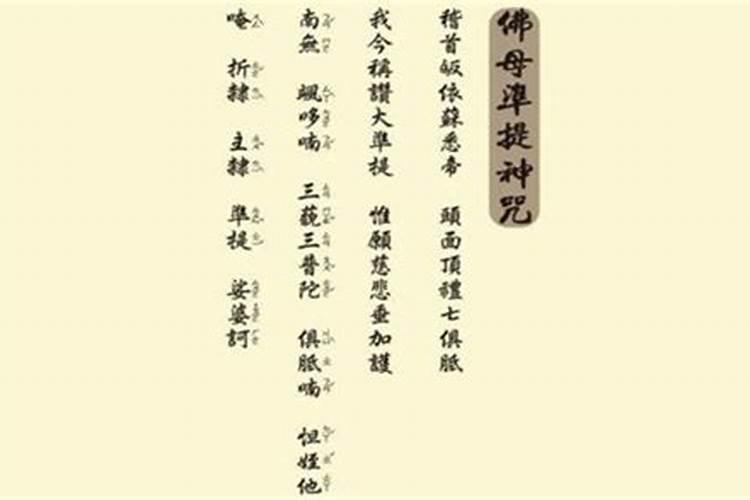 佛母準提神咒
稽首皈依蘇悉帝 頭面頂禮七俱胝
我今稱讚大準提 惟願慈悲垂加護
南無 颯哆喃 三藐三菩陀 俱胝喃 怛姪他
唵 折隸 主隸 準提 娑婆訶